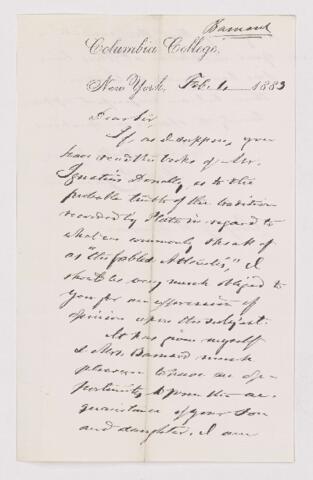 Barnard
Columbia College,
New York, Feb. 1, 1883
Dear Sir,
If, as I suppose, you
have read the book of Mr.
Ignatius Donnelly, as to the
probable truth of the tradition
recorded by Plato in regard to
what we commonly speak of
as "the fabled Atlantis," I
should be very much obliged to
you for an expression of
opinion upon the subject.
It has given myself
& Mrs. Barnard much
pleasure to have an op-
portunity to form the ac-
quaintance of your son
and daughter. I am